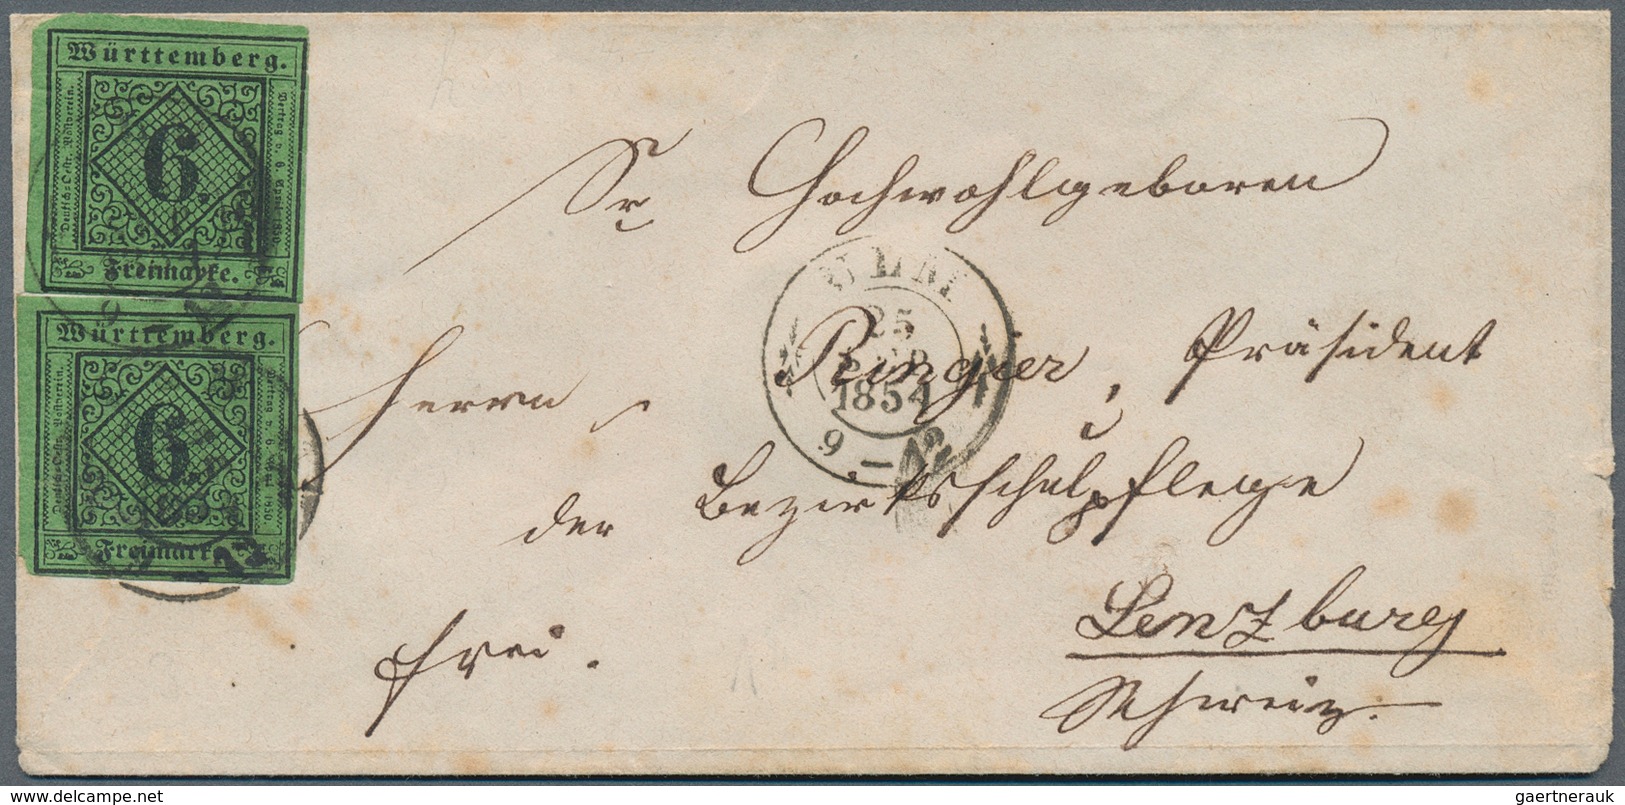 Württemberg.
Deutsch=Oestr. Postverein.
6.
Vertrag v. 6. April 1850.
Freimarke.
Württemberg.
Deutsch=Oestr. Postverein.
6.
Vertrag v. 6. April 1850.
Freimarke.
Sr Hochwohlgeboren
Herrn Ringier, Präsident
der Bezirksschulpflege
Lenzburg
Schweiz.
frei.
ULM
25
SEP
1854
9 - 12
www.delcampe.net
gaertnerauk